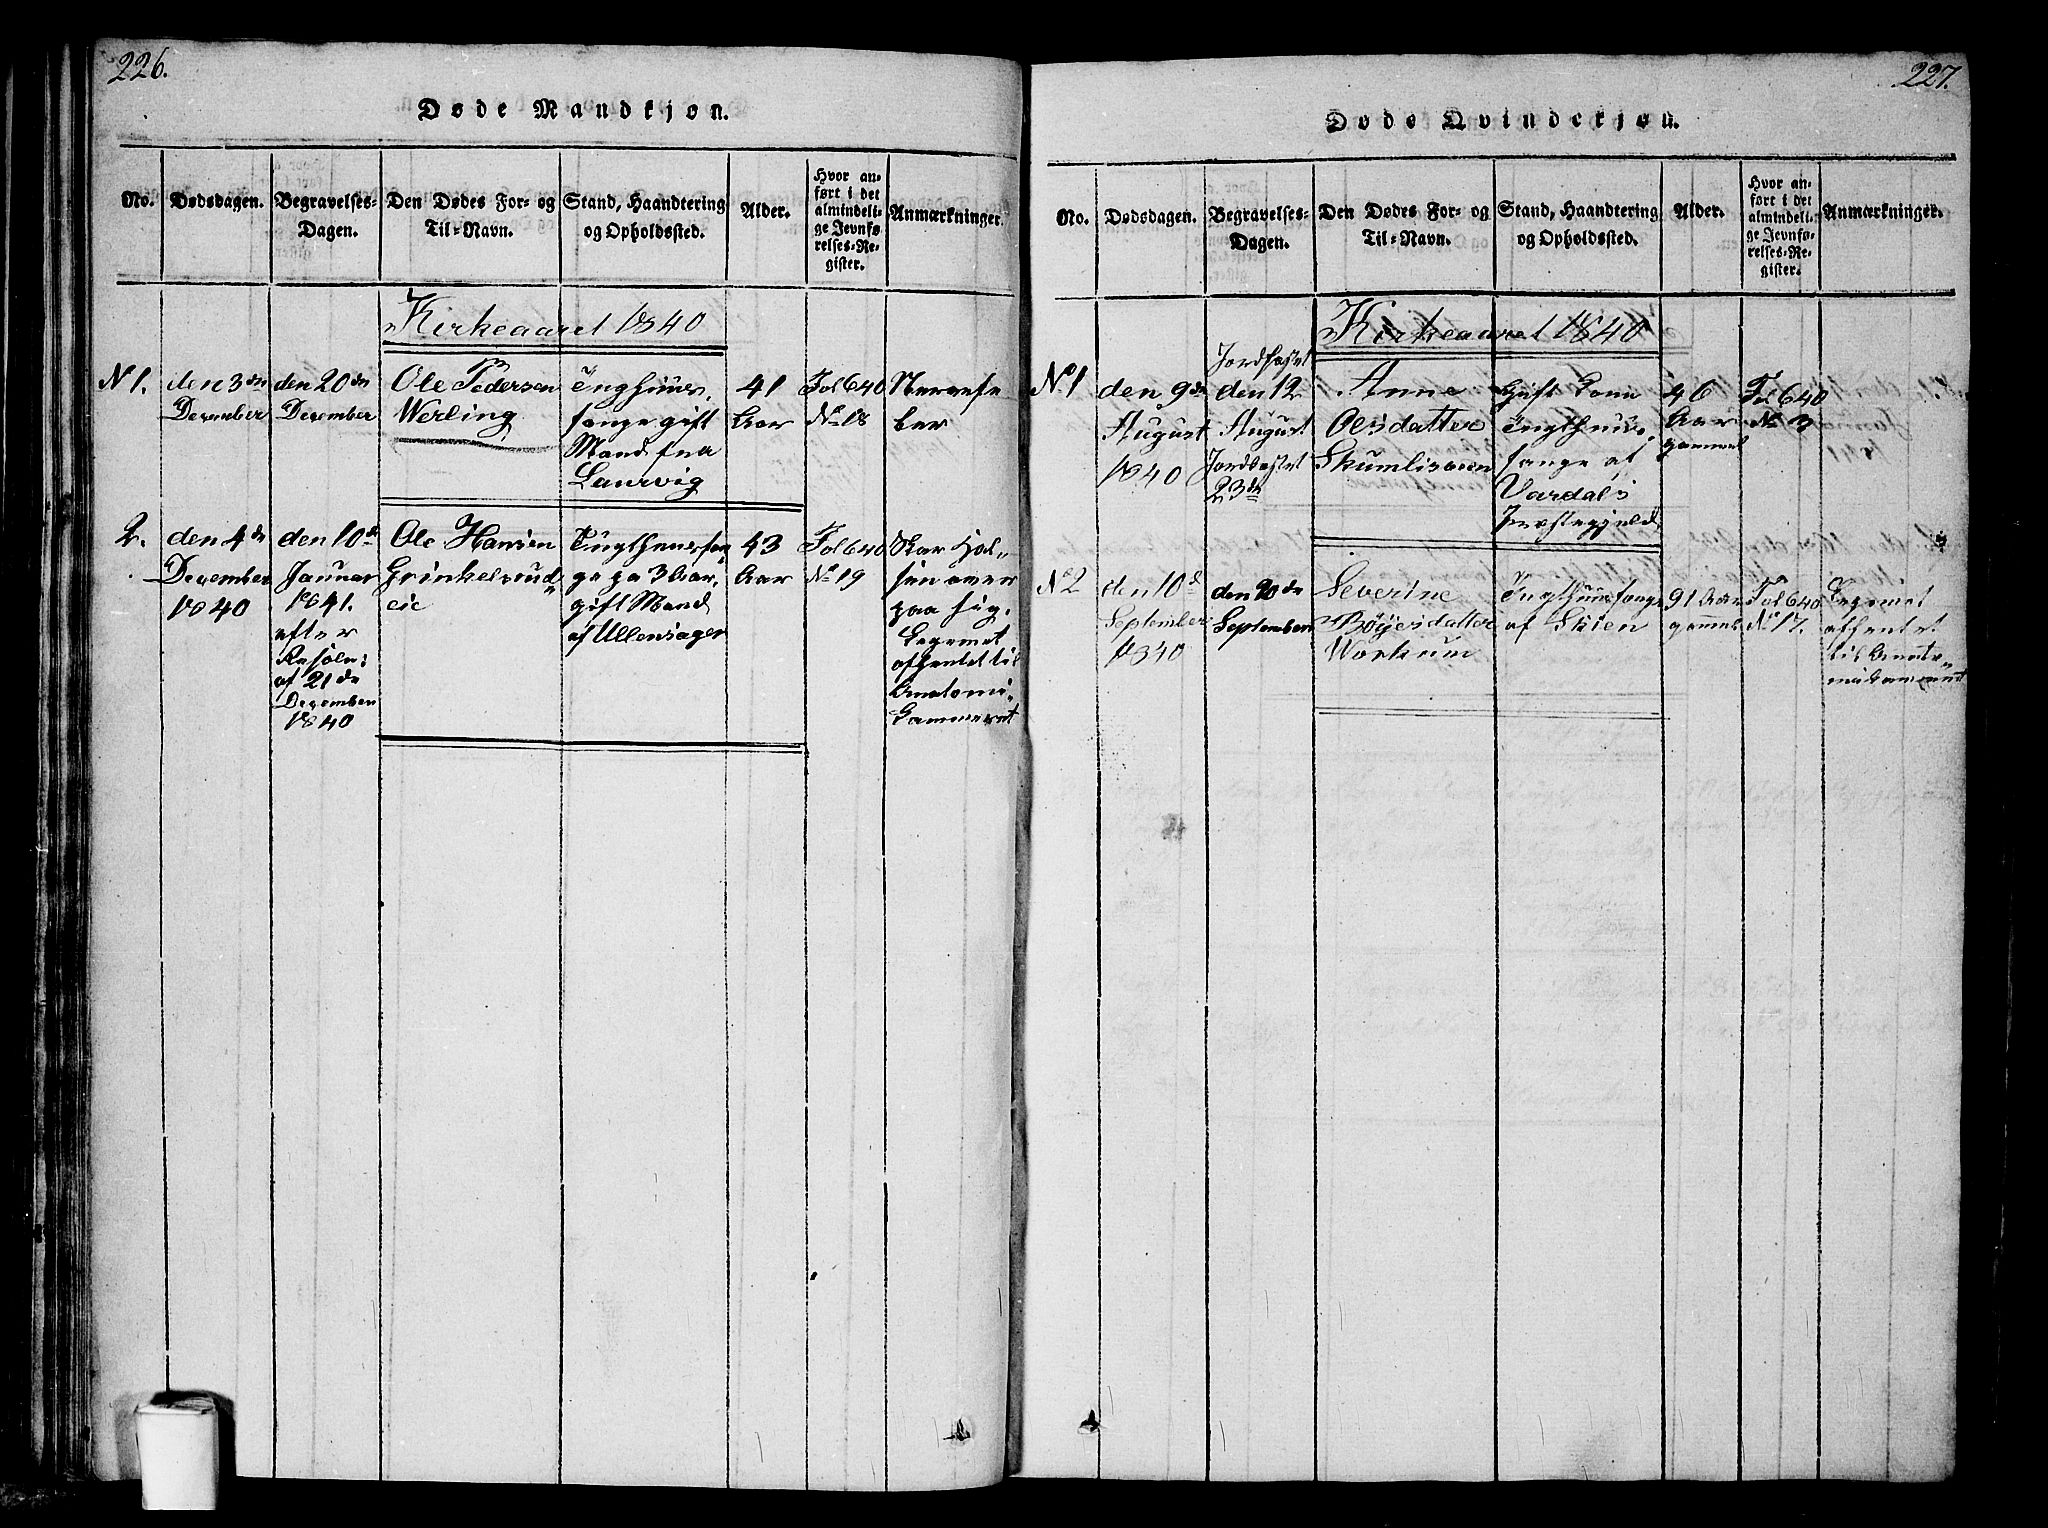 226.
Døde Mandkjøn.
No.
Dødsdagen.
Begravelses-
Dagen.
Den Dødes For- og
Til-Navn.
Stand, Haandtering
og Opholdssted.
Alder.
Hvor an-
ført i det
almindeli-
ge Jevnfø-
relses-Re-
gister.
Anmærkninger
Kirkeaaret 1840
N 1.
den 3de
December
den 20de
December
Ole Pedersen
Werling
Tugthuus,
fange gift
Mand fra
Laurvig
41
Aar
Fol 640
No 18
Nervefe
ber
2.
den 4de
December
1840
den 10de
Januar
1841.
efter
Resolu:
af 21de
December
1840
Ole Hansen
Grinkelsrud
eie
Tugthuusfan
ge pa 3 Aar,
gift Mand
af Ullensager
43
Aar
Fol 640
No 19
Skar Hal-
sen over
paa sig.
Legemet
afhentet til
Anatomi-
kammeret
227.
Døde Qvindekjøn.
No.
Dødsdagen.
Begravelses-
Dagen.
Den Dødes For- og
Til-Navn.
Stand, Haandtering
og Opholdssted.
Alder.
Hvor an-
ført i det
almindeli-
ge Jevnfø-
relses-Re-
gister.
Anmærkninger.
Kirkeaaret 1840
No 1
den 9de
August
1840
Jordfæstet
den 12
August
Jordfæstet
23de
Anne
Olsdatter
Gift Kone
Tugthuus,
fange af
Vardals
Præstegjeld
46
Aar
gammel
Fol 640
No 3
No 2
den 10de
September
1840
den 20de
September
Severine
Böyesdatter
Workum
Tugthuusfange
af Skien
91 Aar
gammel
Fol 640
No 17.
Legemet
afhentet
til Anato-
mikammeret